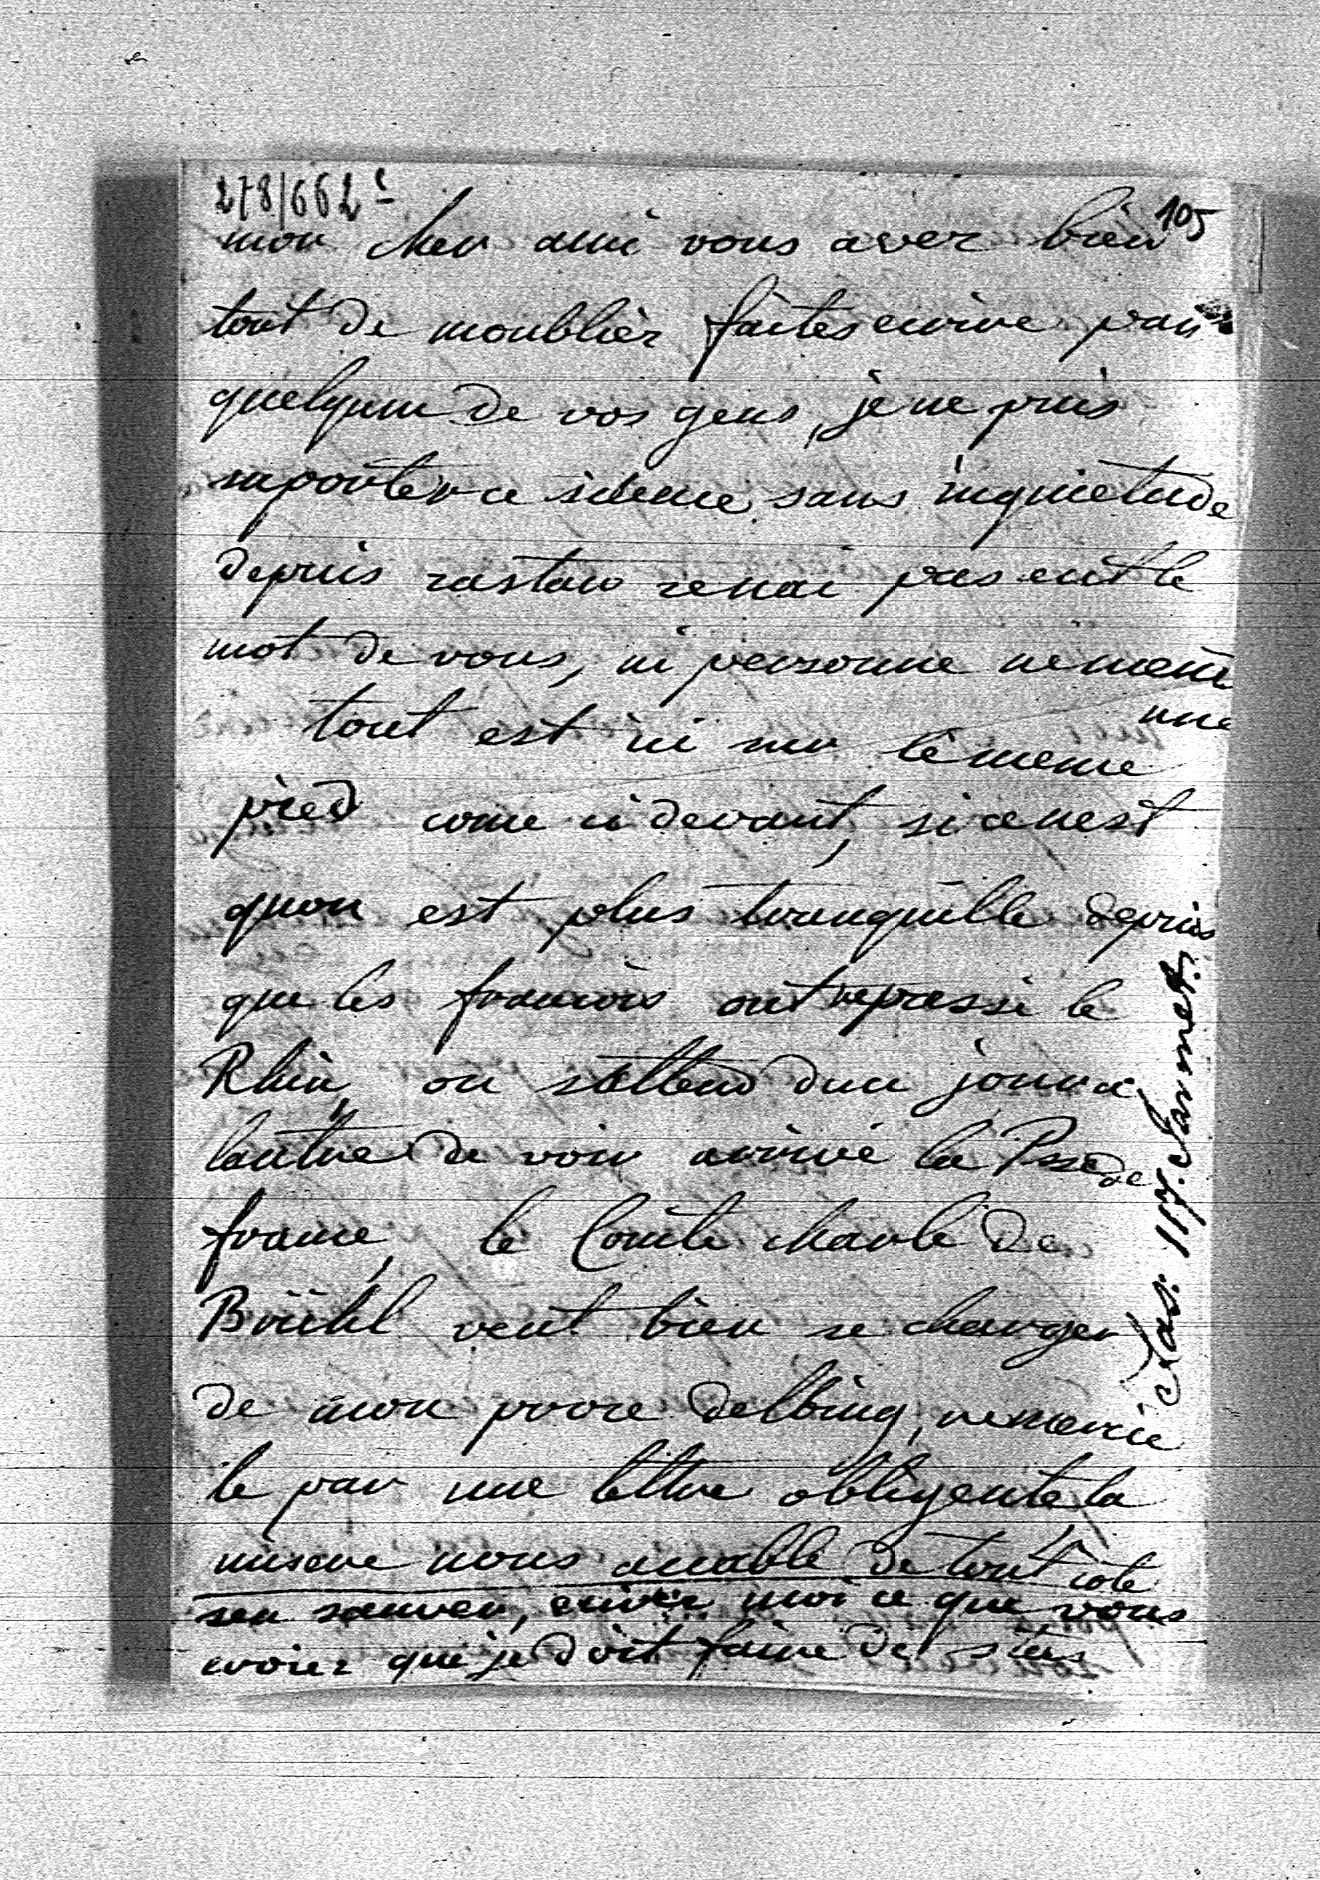 278/662
105
mon cher ami vous avez bien
tort de moublier faites ecrire par
quelqunt de vos gens, je ne puis
suporter ce silence sans inquietude
depuis rastaw je nai pas eut le
mot de vous, ni personne ne mem
tout est ici sur le meme
pied come ci devant, si ce nest
quon est plus tranquille depuis
que les francois ont repassé le
Rhin, on sattend dun jour a
lautre de voir arrivé la Psse de
france, le Comte charle de
Brühl veut bien se charger
de mon povre delbing, remercie
le par une lettre obligente la
misere nous accable de tout coté
sen sauver, crivez moi ce que vous
croiez que je doit faire de